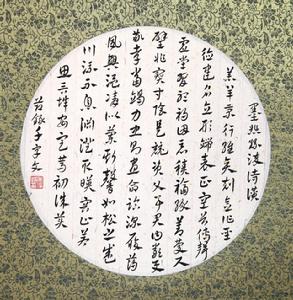 墨悲絲染詩讚
羔羊景行維賢克念作聖
德建名立形端表正空谷傳聲
虛堂習聽禍因惡積福緣善慶尺
璧非寶寸陰是競資父事君曰嚴與
敬孝當竭力忠則盡命臨深履薄
夙興溫凊似蘭斯馨如松之盛
川流不息淵澄取映容止若
思言辭安定篤初誠美
節錄千字文